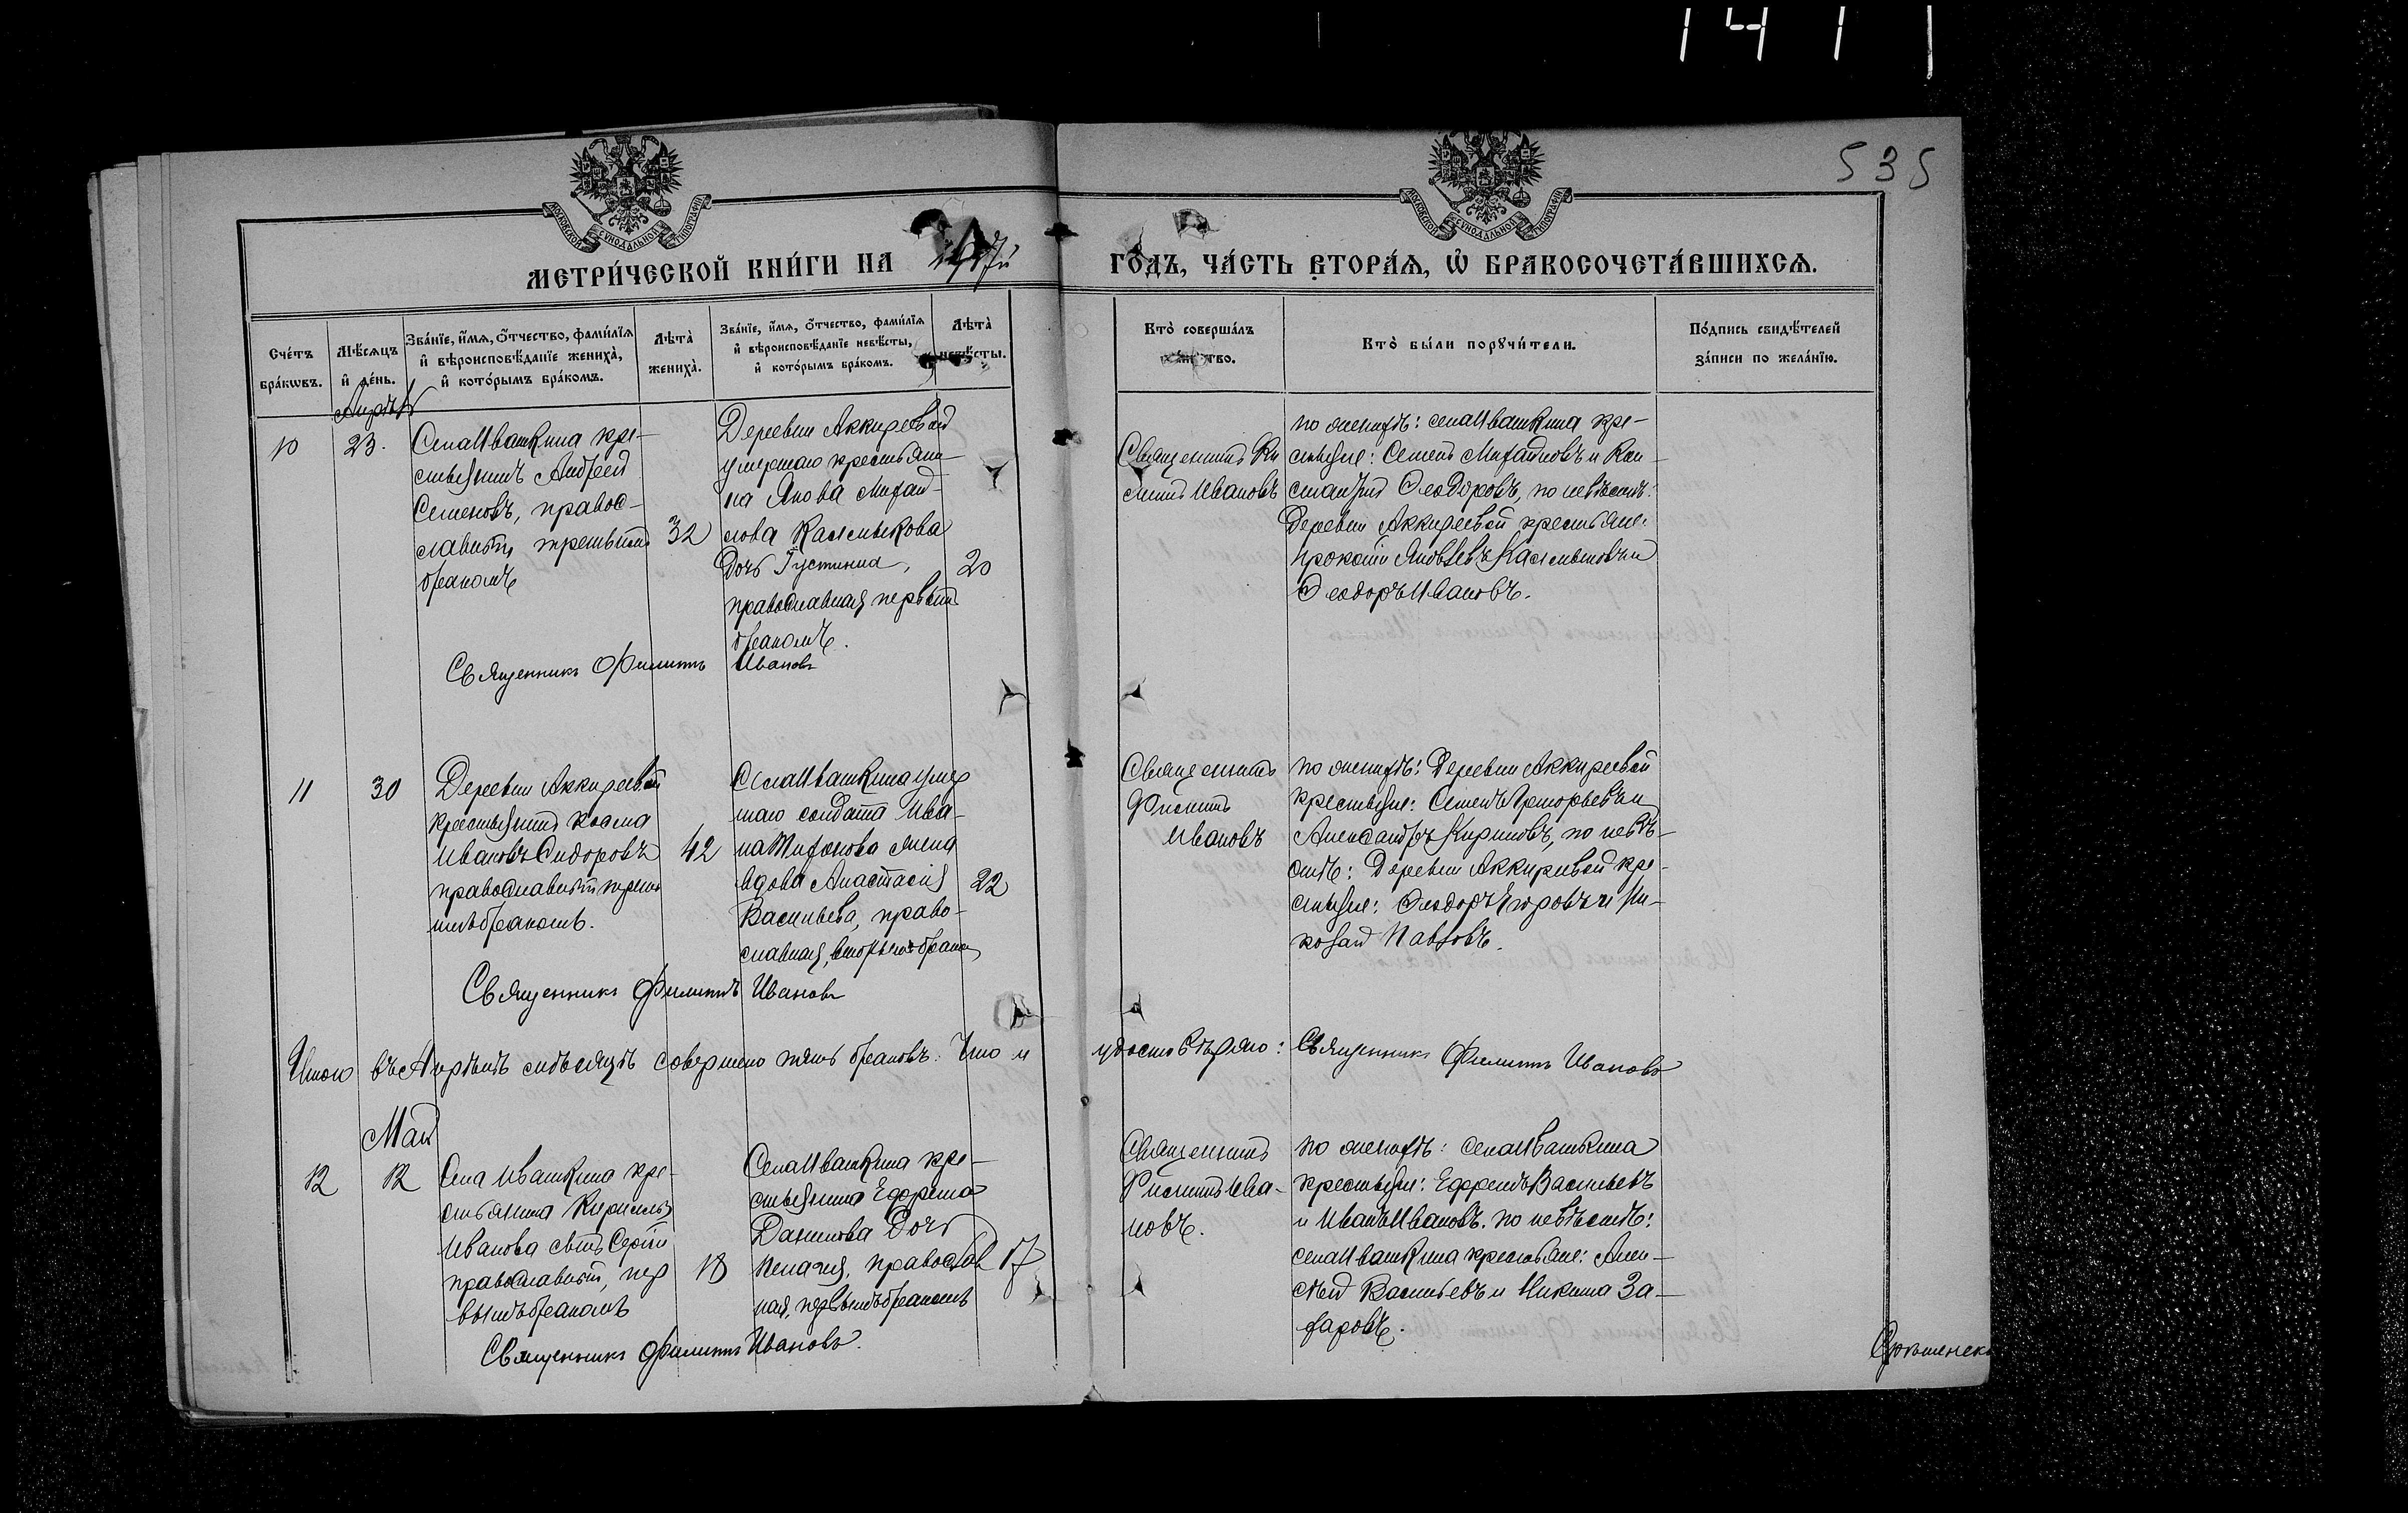 1411
535
МОСКОВСКОЙ СУНОДАЛЬНОЙ ТИПОГРАФІИ
МОСКОВСКОЙ СУНОДАЛЬНОЙ ТИПОГРАФІИ
МЕТРИ́ЧЕСКОЙ КНИ́ГИ НА 1917й ГО́ДЪ, ЧА́СТЬ ВТОРА́Ѧ, Ѡ҆ БРАКОСОЧЕТА́ВШИХСѦ.
Сче́тъ бра́кѡвъ.
Мѣ́сѧцъ и҆ де́нь.
Зва́нїе, и҆́мѧ, ѻ҆́тчество, фами́лїѧ и҆ вѣроисповѣ́данїе жениха̀, и҆ кото́рымъ бра́комъ.
Лѣ́та̀ жениха̀.
Зва́нїе, и҆́мѧ, ѻ҆́тчество, фами́лїѧ и҆ вѣроисповѣ́данїе невѣ́сты, и҆ кото́рымъ бра́комъ.
Лѣ́та̀ невѣ́сты.
Кто̀ соверша́лъ
Кто̀ бы́ли порꙋчи́тели.
По́дпись свидѣ́телей за́писи по жела́нїю.
Апрѣль
10
23.
Села Ивашкина кре-
стьянинъ Андрей
Семеновъ, правос-
лавный третьимъ
бракомъ
32
Деревни Аккиреевой
умершаго крестьяни-
на Якова Михай-
лова Калмыкова
дочь Іустинiа,
православная первымъ
бракомъ.
20
Священникъ Фи
липпъ Ивановъ
по женихѣ: села Ивашкина кре-
стьяне: Семенъ Михайловъ и Кон-
стантинъ Ѳеодоровъ, по невѣстѣ:
Деревни Аккиреевой крестьяне:
Прокопiй Яковлевъ Калмыковъ и
Ѳеодоръ Ивановъ.
Священникъ Филиппъ Ивановъ
11
30
Деревни Аккиреевой
крестьянинъ Косма
Ивановъ Сидоровъ
православный треть
имъ бракомъ.
42
Села Ивашкина умер
шаго солдата Ива-
на Тифонова жена
вдова Анастасiя
Васильева, право-
славная, вторымъ бракомъ
22
Священникъ
Филиппъ
Ивановъ
по женихѣ: Деревни Аккиреевой
крестьяне: Семенъ Григорьевъ и
Александръ Кириловъ, по невѣ-
стѣ: Деревни Аккиреевой кре-
стьяне: Ѳеодоръ Егоровъ и Ни-
колай Павловъ.
Священникъ Филиппъ Ивановъ
Итого въ Апрѣлѣ мѣсяцѣ совершено пять браковъ. Что и удостовѣряю: Священникъ Филиппъ Ивановъ
Май
12
12
Села Ивашкина кре-
стьянина Кирилы
Иванова сынъ Сергiй
православный, пер
вымъ бракомъ
18
Села Ивашкина кре-
стьянина Ефрема
Данилова дочь
Пелагiя, православ
ная, первымъ бракомъ
17
Священникъ
Филиппъ Ива-
новъ.
по женихѣ: села Ивашкина
крестьяне: Ефремъ Васильевъ
и Иванъ Ивановъ. по невѣстѣ:
села Ивашкина крестьяне: Алек-
сѣй Васильевъ и Никита За-
харовъ.
Священникъ Филиппъ Ивановъ.